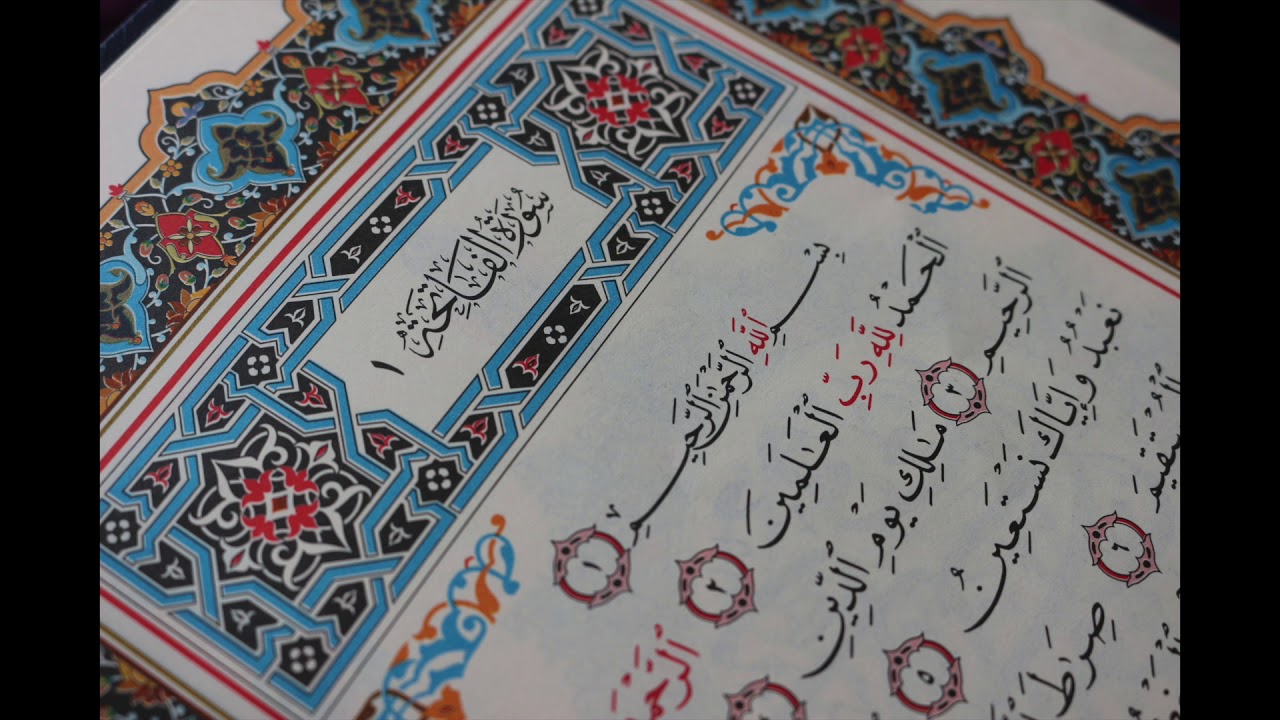 سُورَةُ الفَاتِحَةِ ١
بِسْمِ ٱللَّهِ ٱلرَّحْمَٰنِ ٱلرَّحِيمِ ١
ٱلْحَمْدُ لِلَّهِ رَبِّ ٱلْعَٰلَمِينَ ٢
ٱلرَّحِيمِ ٣ مَٰلِكِ يَوْمِ ٱلدِّينِ
نَعْبُدُ وَإِيَّاكَ نَسْتَعِينُ ٥
ٱلْمُسْتَقِيمَ ٦ صِرَٰطَ